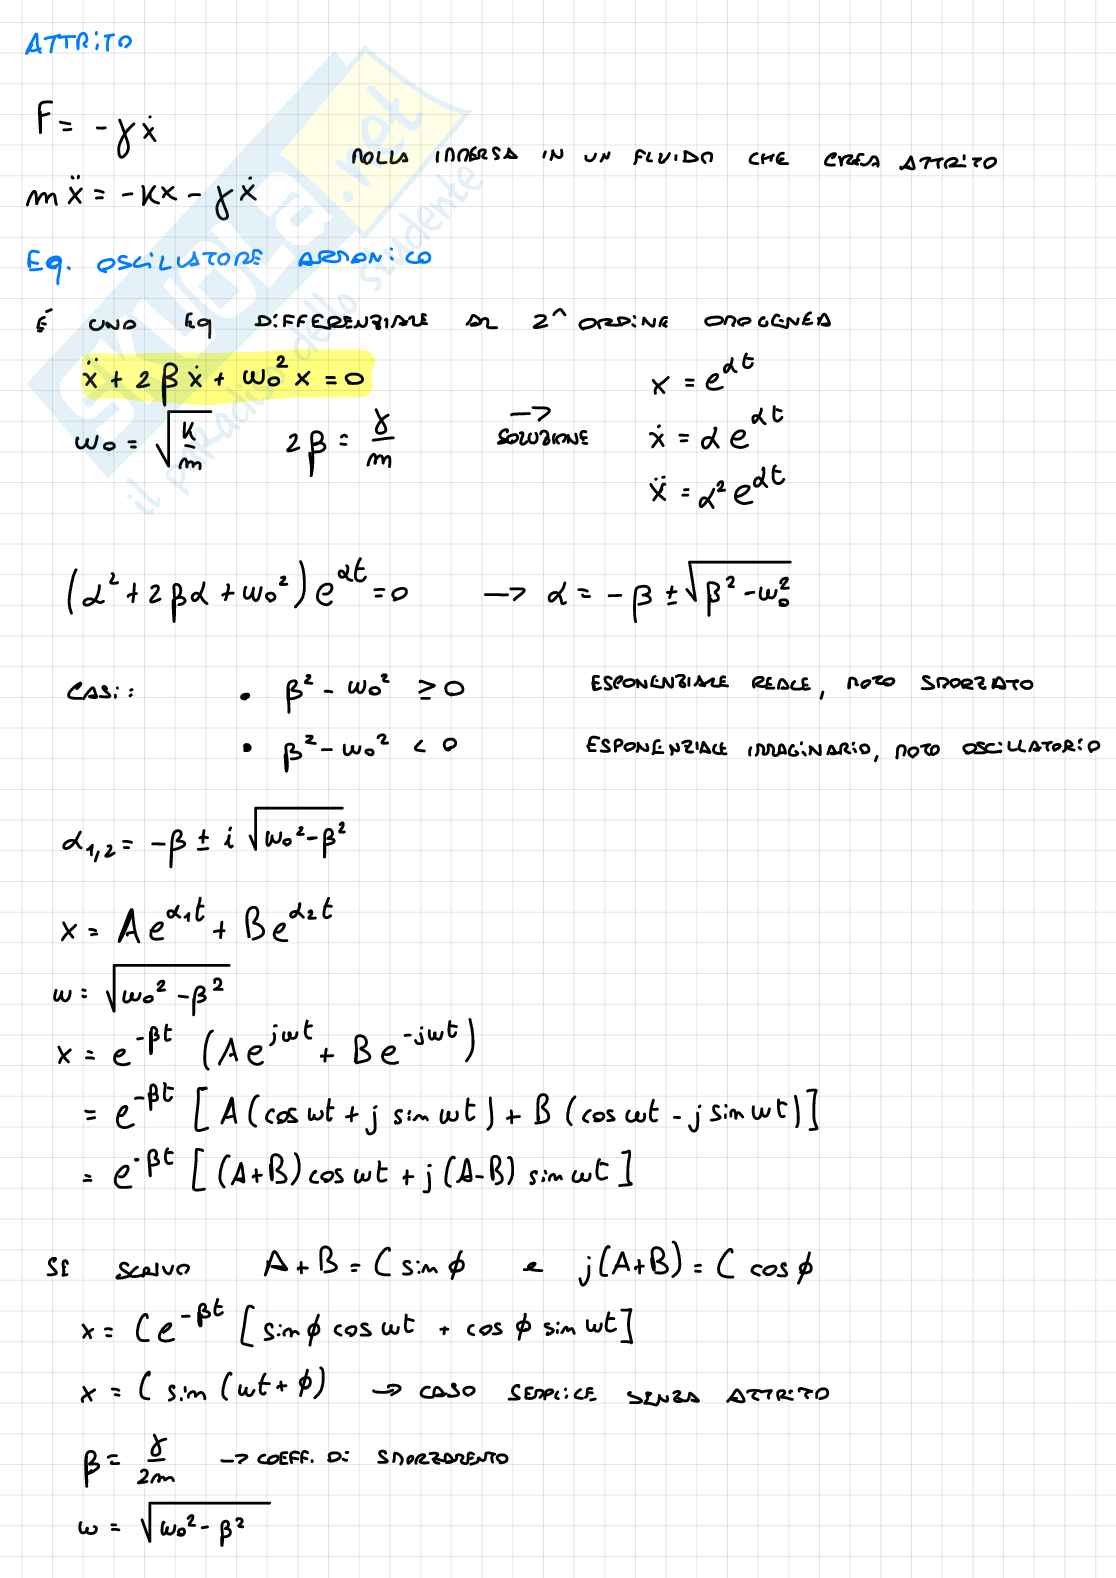 ATTRITO
F = -γẋ
MOLLA IMMERSA IN UN FLUIDO CHE CREA ATTRITO
mẍ = -Kx - γẋ
Eq. OSCILLATORE ARMONICO
É UNO EQ DIFFERENZIALE AL 2^ ORDINE OMOGENEA
ẍ + 2βẋ + ω₀²x = 0
x = e^{αt}
ω₀ = √(K/m)   2β = γ/m   → SOLUZIONE   ẋ = αe^{αt}
ẍ = α²e^{αt}
(α² + 2βα + ω₀²)e^{αt} = 0 → α = -β ± √(β² - ω₀²)
CASI: • β² - ω₀² ≥ 0 ESPONENZIALE REALE, MOTO SMORZATO
• β² - ω₀² < 0 ESPONENZIALE IMMAGINARIO, MOTO OSCILLATORIO
α₁,₂ = -β ± i√(ω₀² - β²)
x = Ae^{α₁t} + Be^{α₂t}
ω = √(ω₀² - β²)
x = e^{-βt} (Ae^{jωt} + Be^{-jωt})
= e^{-βt} [A(cos ωt + j sin ωt) + B(cos ωt - j sin ωt)]
= e^{-βt} [(A+B) cos ωt + j(A-B) sin ωt]
SE SCRIVO A + B = C sin φ e j(A+B) = C cos φ
x = Ce^{-βt} [sin φ cos ωt + cos φ sin ωt]
x = C sin (ωt + φ) → CASO SEMPLICE SENZA ATTRITO
β = γ/2m → COEFF. DI SMORZAMENTO
ω = √(ω₀² - β²)
SKUOLA.net
il paradiso dello studente